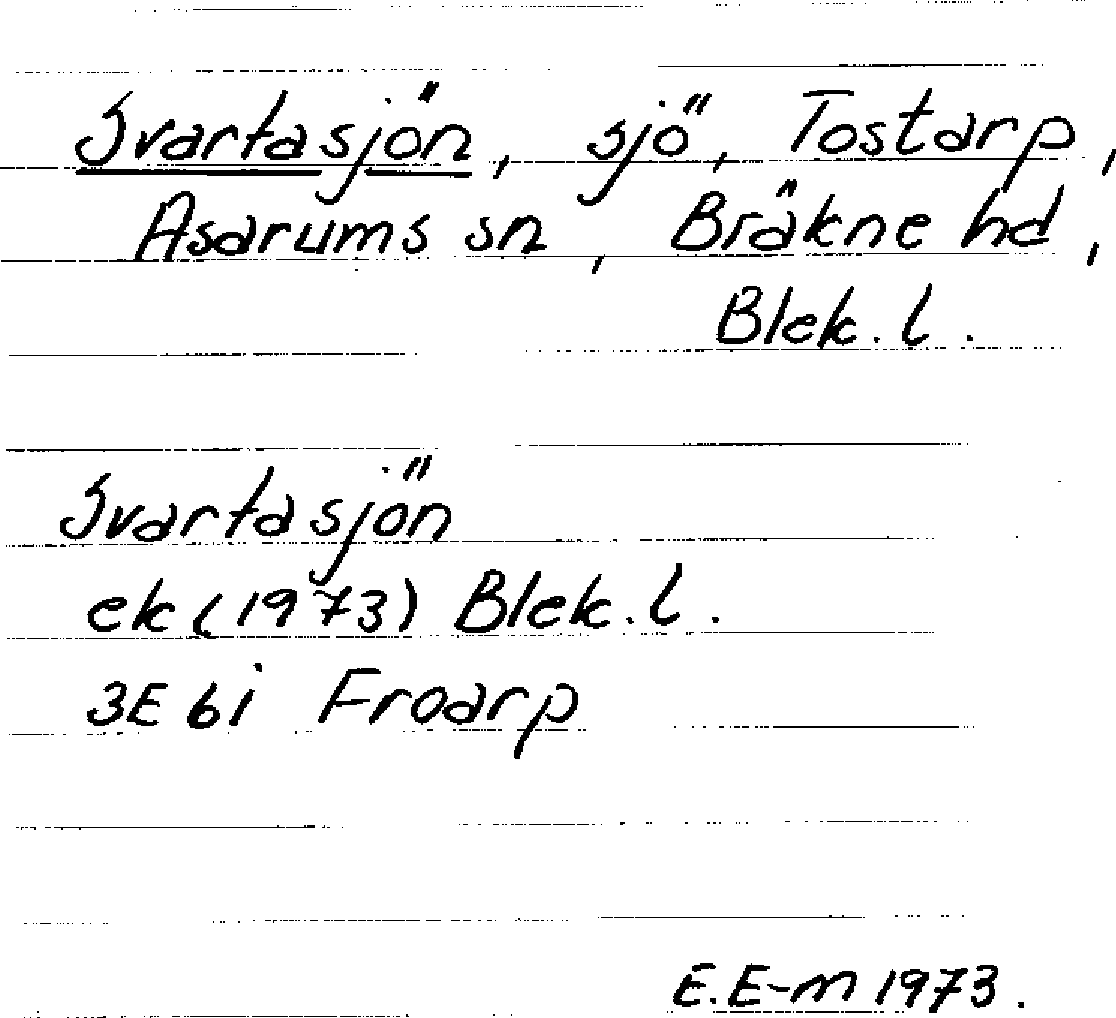 Svartasjön, sjö, Tostarp,
Asarums sn, Bräkne hd,
Blek. l.
Svartasjön
ek (1973) Blek. l.
3E 6i Froarp
E. E-m 1973.